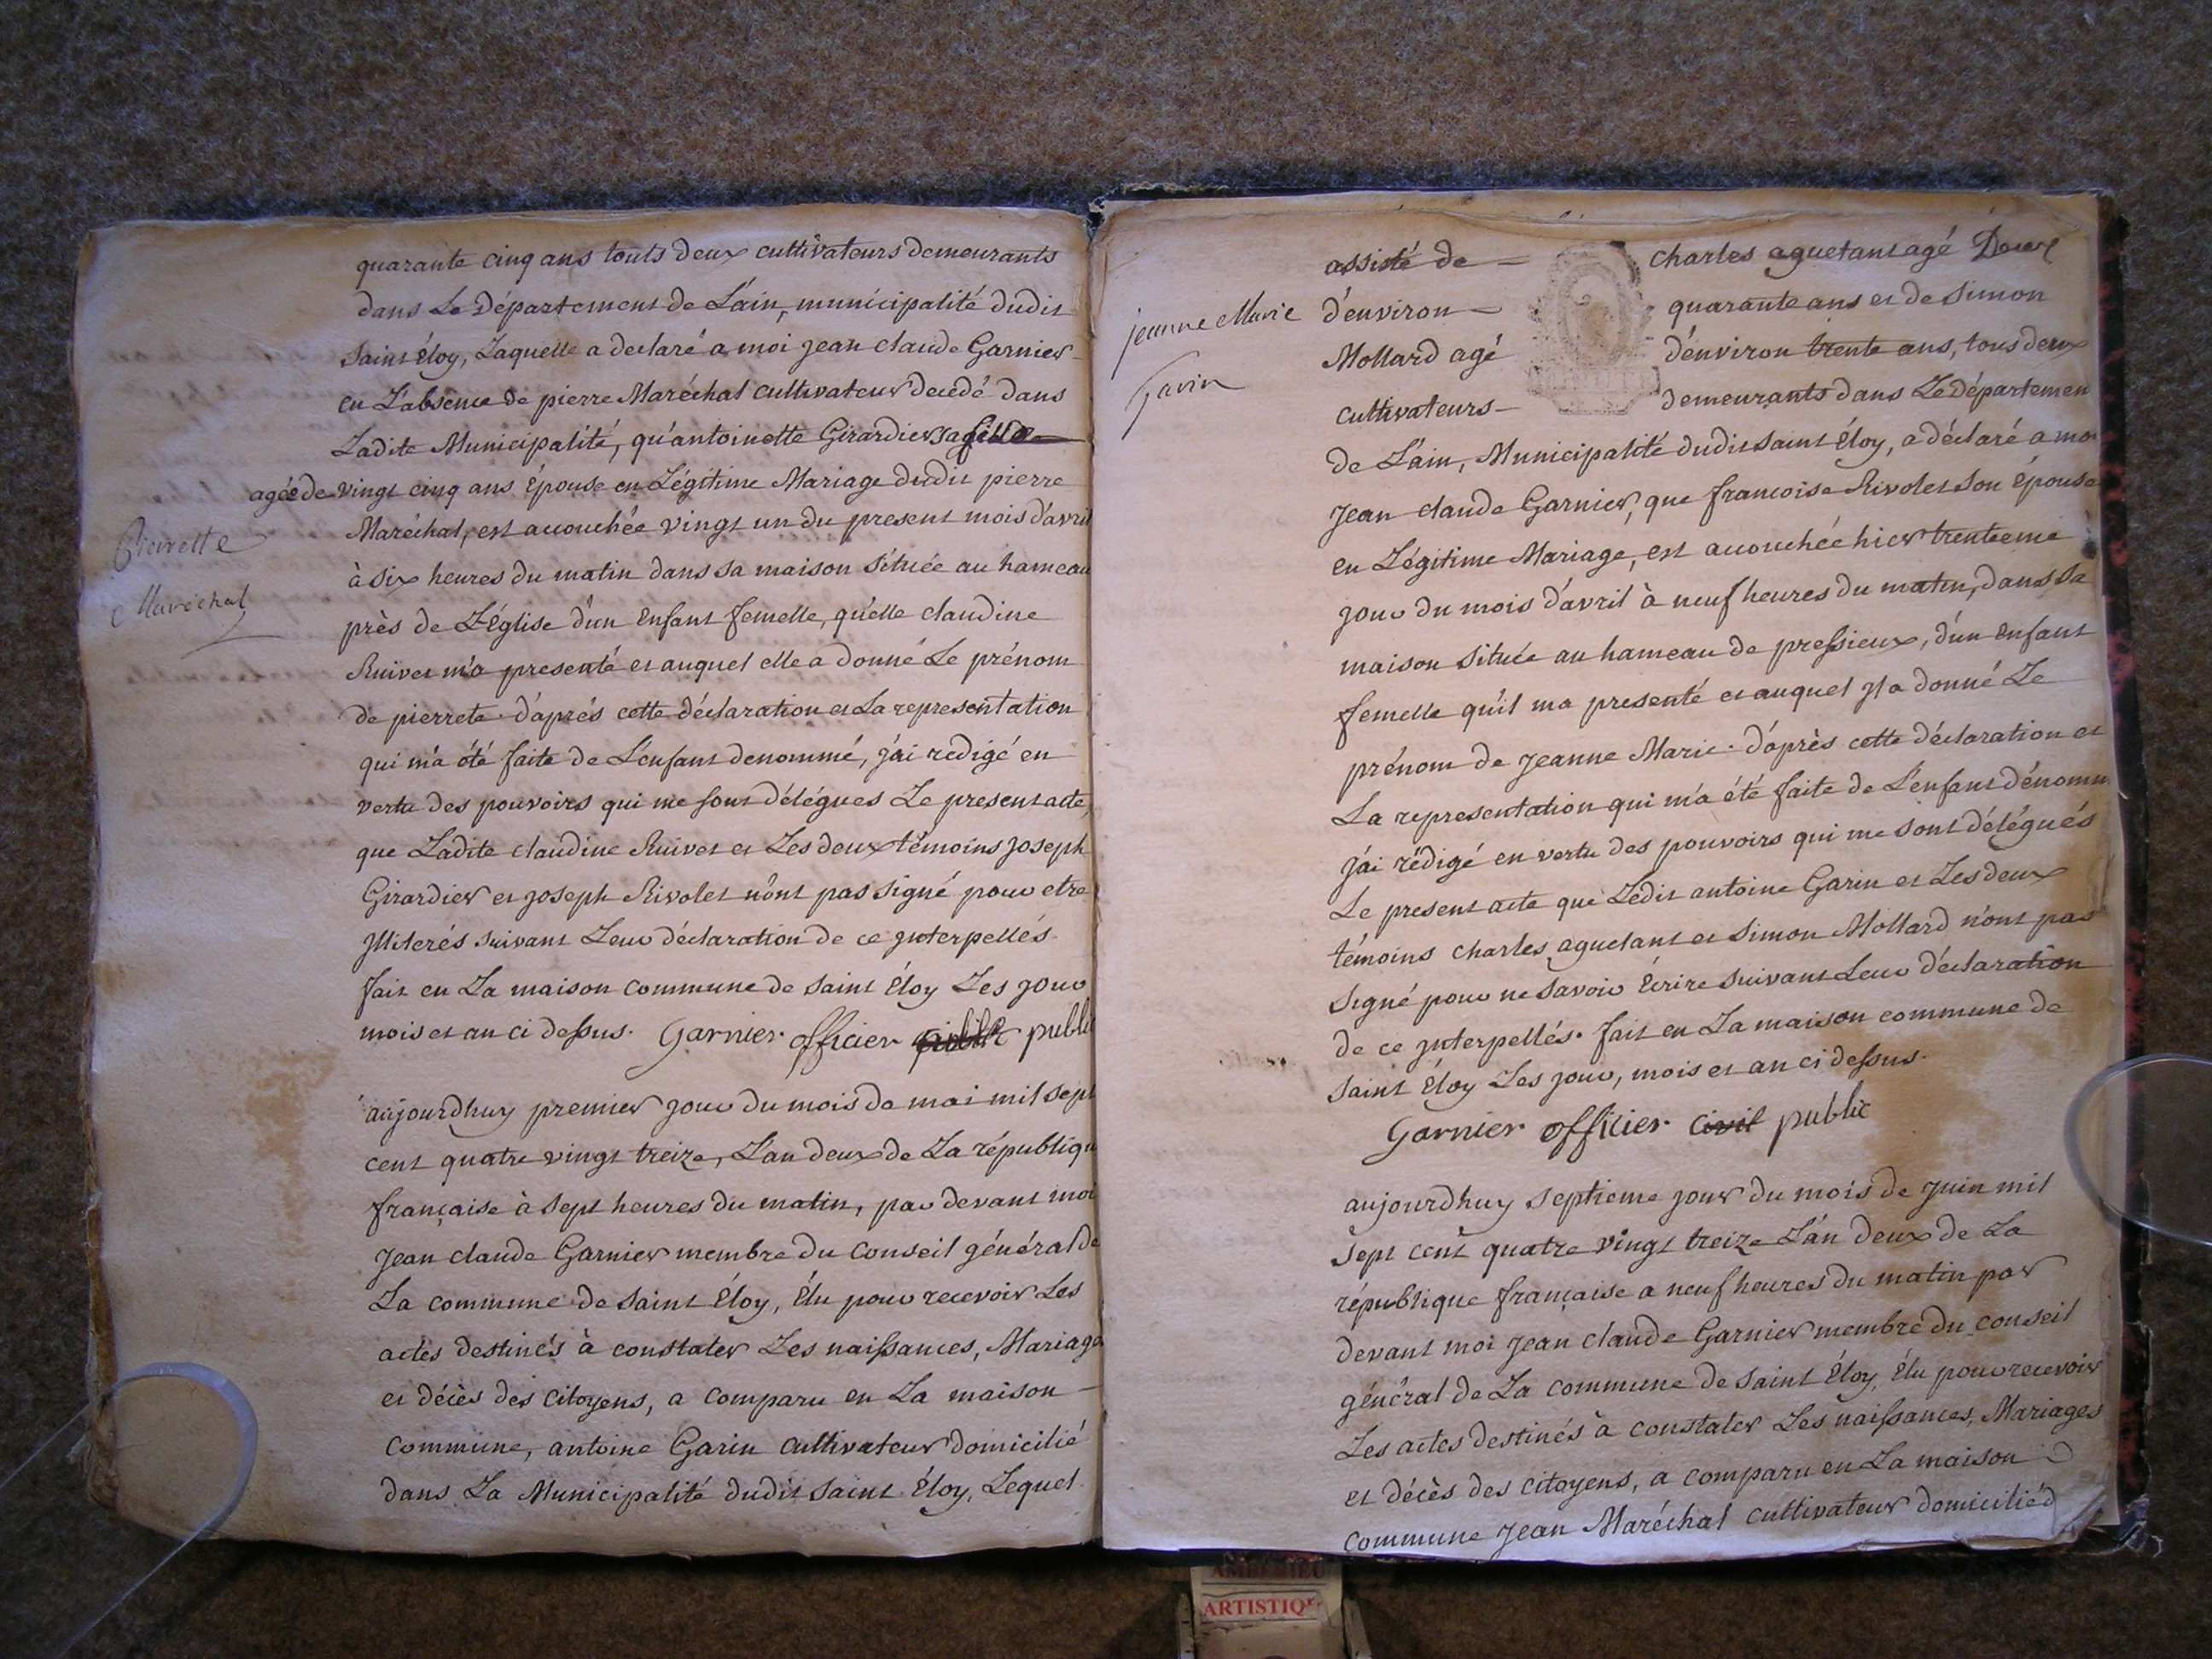 quarante cinq ans touts deux cultivateurs demeurants
dans Le Département de L'ain, municipalité dudit
Saint éloy, Laquelle a declaré a moi jean claude Garnier
en L'absence de pierre Maréchal cultivateur decedé dans
Ladite Municipalité, qu'antoinette Girardier sa fille
agée de vingt cinq ans Épouse en Légitime Mariage dudit pierre
Maréchal, est accouchée vingt un du present mois d'avril
Pierrette
Maréchal
à six heures du matin dans sa maison située au hameau
près de L'église d'un enfant femelle, qu'elle claudine
Ruivet m'a presenté et auquel elle a donné Le prénom
de pierrete. d'après cette déclaration et La representation
qui m'a été faite de L'enfant denommé, j'ai redigé en
vertu des pouvoirs qui me sont délégues Le present acte,
que Ladite claudine Ruivet et Les deux témoins joseph
Girardier et joseph Rivolet n'ont pas signé pour etre
jlliterés suivant Leur déclaration de ce jnterpellés.
fait en La maison commune de Saint Éloy Les jour
mois et an ci dessus. Garnier officier public
aujourdhuy premier jour du mois de mai mil sept
cent quatre vingt treize, L'an deux de La républiqu
française à sept heures du matin, par devant moi
jean claude Garnier membre du Conseil général de
La commune de Saint Éloy, Élu pour recevoir Les
actes destinés à constater Les naissances, Mariage
et décès des citoyens, a comparu en La maison
commune, antoine Garin cultivateur domicilié
dans La Municipalité dudit Saint Éloy, Lequel
jeanne Marie
Garin
assisté de charles aguetant agé
d'environ quarante ans et de Simon
Mollard agé d'environ trente ans, tous deux
cultivateurs demeurants dans Le départemen
de L'ain, Municipalité dudit saint Éloy, a déclaré a moi
jean claude Garnier, que francoise Rivolet son épouse
en Légitime Mariage, est accouchée hier trentieme
jour du mois d'avril à neuf heures du matin, dans sa
maison située au hameau de pressieux, d'un enfant
femelle qu'il ma presenté et auquel jl a donné Le
prénom de jeanne Marie. d'après cette déclaration et
La representation qui m'a été faite de L'enfant dénomm
j'ai rédigé en vertu des pouvoirs qui me sont délégués
Le present acte que Ledit antoine Garin et Les deux
témoins charles aguetant et Simon Mollard n'ont pas
signé pour ne savoir écrire suivant Leur déclaration
de ce jnterpellés. fait en La maison commune de
saint Éloy Les jour, mois et an ci dessus.
Garnier officier civil public
aujourdhuy septieme jour du mois de juin mil
sept cent quatre vingt treize L'an deux de La
république française a neuf heures du matin par
devant moi jean claude Garnier membre du conseil
général de La commune de saint Éloy, Élu pour recevoir
Les actes destinés à constater Les naissances, Mariages
et décès des citoyens, a comparu en La maison
commune jean Maréchal cultivateur domicilié d
ARTISTIQ